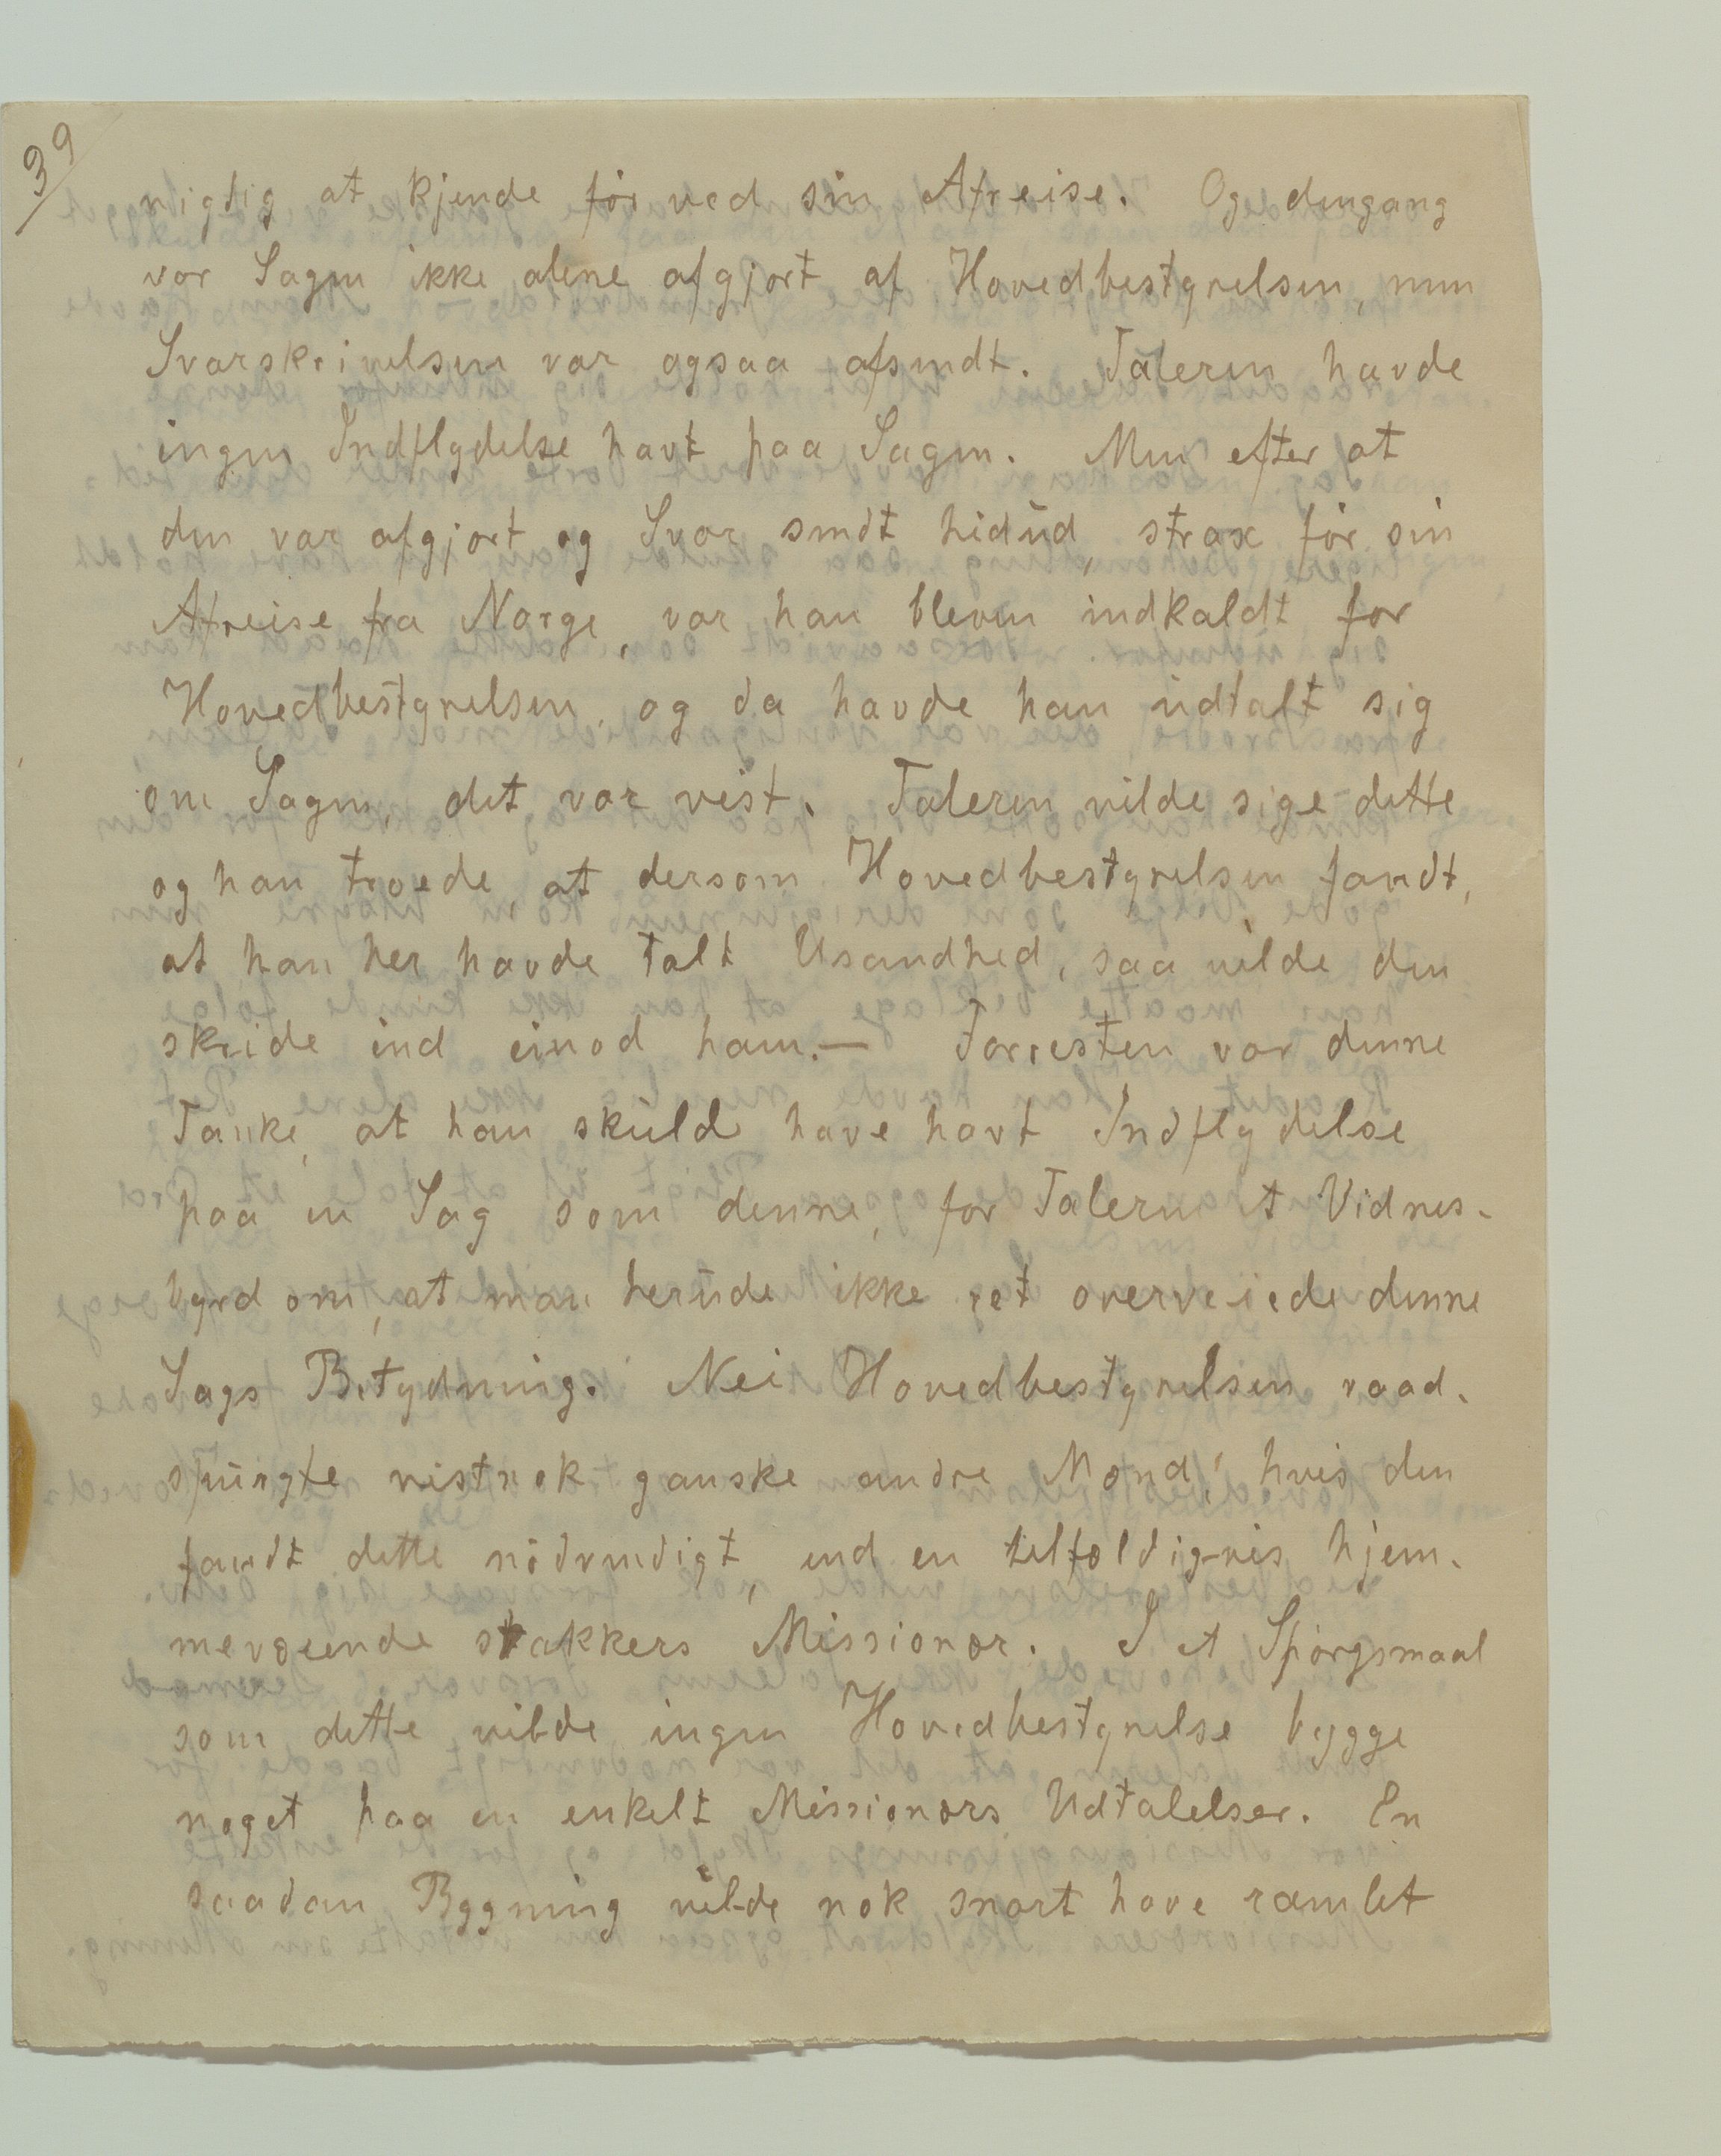 39
rigtig at kjende før ved sin Afreise. Og dengang
var Sagen ikke alene afgjort af Hovedbestyrelsen, men
Svarskrivelsen var ogsaa afsendt. Taleren havde
ingen Indflydelse havt paa Sagen. Men efter at
den var afgjort og Svar sendt hidud, strax før sin
Afreise fra Norge, var han bleven indkaldt for
Hovedbestyrelsen, og da havde han udtalt sig
om Sagen, det var vist. Taleren vilde sige dette
og han troede, at dersom Hovedbestyrelsen fandt,
at han her havde talt Usandhed, saa vilde den
skride ind imod ham. — Forresten var denne
Tanke, at han skulde have havt Indflydelse
paa en Sag som denne, for Taleren et Vidnes-
byrd om, at man herude ikke ret overveiede denne
Sags Betydning. Nei Hovedbestyrelsen raad-
spurgte vistnok ganske andre Mænd, hvis den
fandt dette nødvendigt, end en tilfældigvis hjem-
meværende stakkers Missionær. I et Spørgsmaal
som dette vilde ingen Hovedbestyrelse bygge
noget paa en enkelt Missionærs Udtalelser. En
saadan Bygning vilde nok snart have ramlet